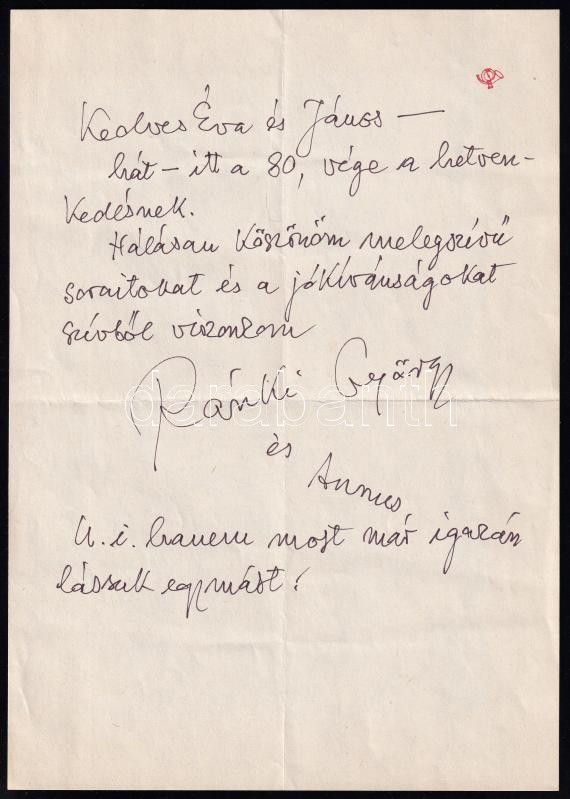 Kedves Éva és János —
hát — itt a 80, vége a hetven-
kedésnek.
Hálásan köszönöm melegszívű
soraitokat és a jókívánságokat
szívből viszonzom
Ránki György
darabanth
és
Annus
U. i. hanem most már igazán
lássuk egymást!